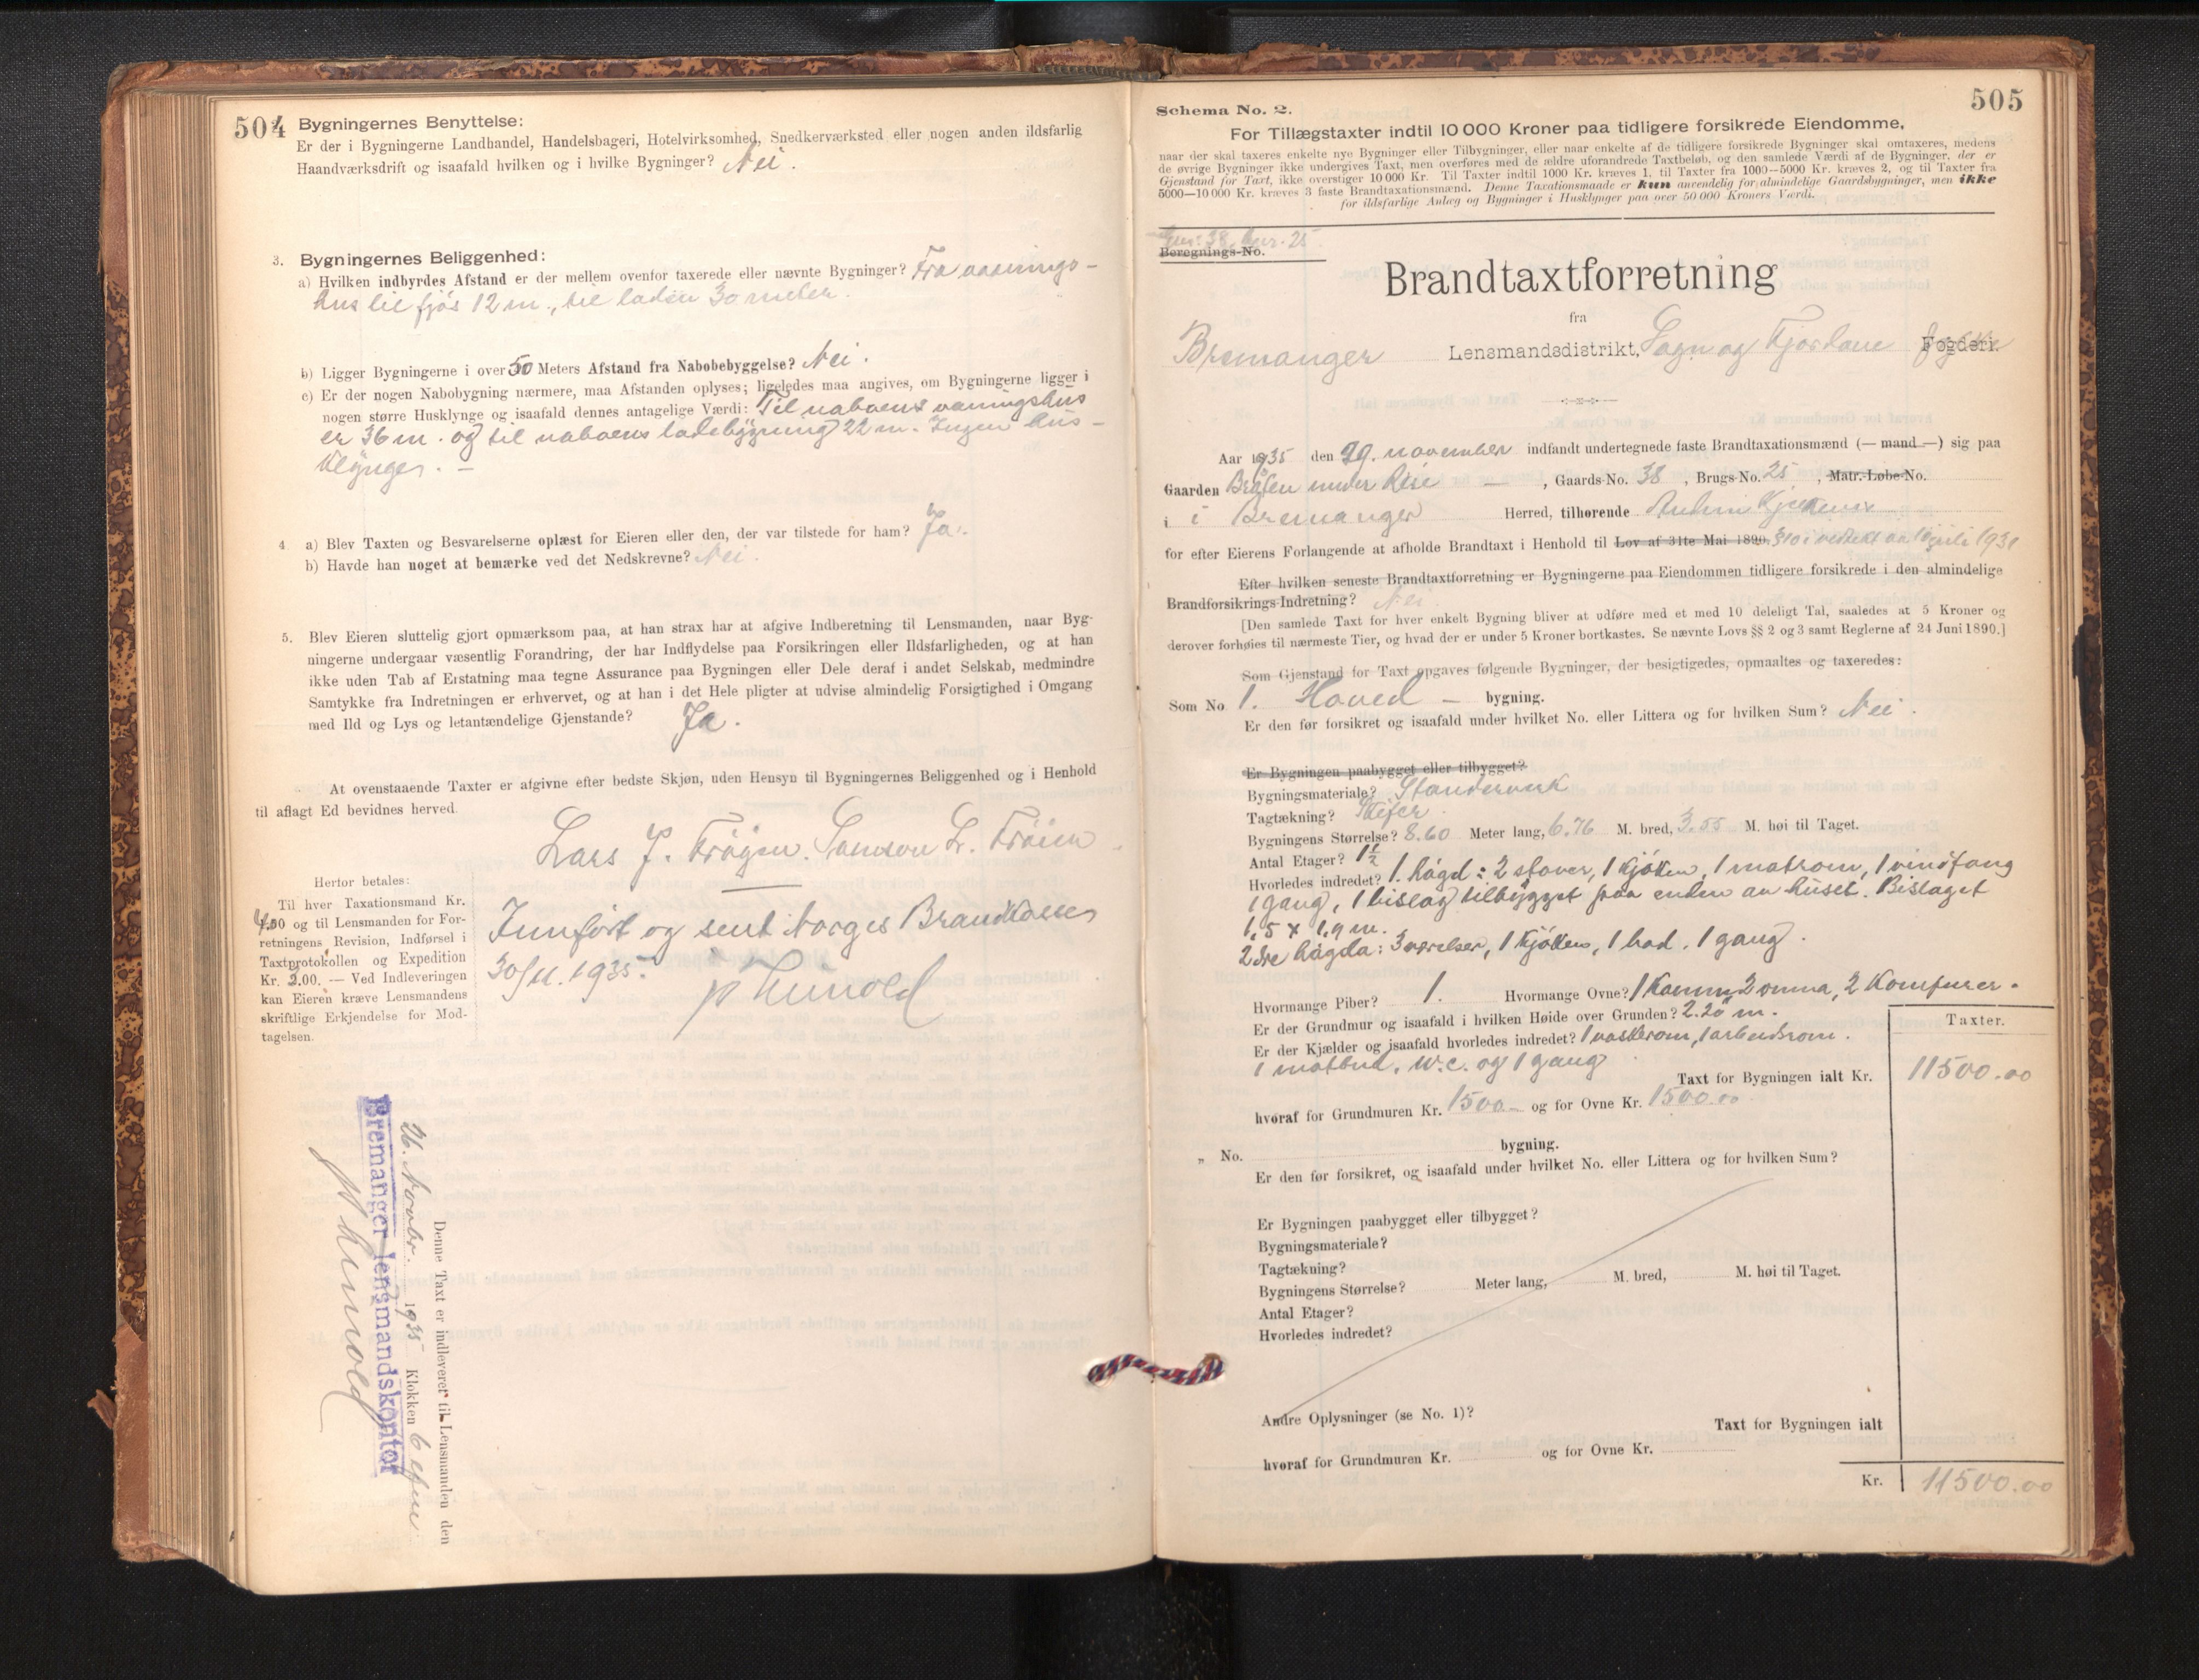 504
Bygningernes Benyttelse:
Er der i Bygningerne Landhandel, Handelsbageri, Hotelvirksomhed, Snedkerværksted eller nogen anden ildsfarlig
Haandværksdrift og isaafald hvilken og i hvilke Bygninger? Nei.
3. Bygningernes Beliggenhed:
a) Hvilken indbyrdes Afstand er der mellem ovenfor taxerede eller nævnte Bygninger? Fra vaanings-
hus til fjös 12 m., til laden 30 meter.
b) Ligger Bygningerne i over 50 Meters Afstand fra Nabobebyggelse? Nei.
c) Er der nogen Nabobygning nærmere, maa Afstanden oplyses; ligeledes maa angives, om Bygningerne ligger i
nogen større Husklynge og isaafald dennes antagelige Værdi: Til naboens vaningshus
er 36 m. og til naboens ladebygning 22 m. Ingen hus-
klynger. —
4. a) Blev Taxten og Besvarelserne oplæst for Eieren eller den, der var tilstede for ham? Ja.
b) Havde han noget at bemærke ved det Nedskrevne? Nei.
5. Blev Eieren sluttelig gjort opmærksom paa, at han strax har at afgive Indberetning til Lensmanden, naar Byg-
ningerne undergaar væsentlig Forandring, der har Indflydelse paa Forsikringen eller Ildsfarligheden, og at han
ikke uden Tab af Erstatning maa tegne Assurance paa Bygningen eller Dele deraf i andet Selskab, medmindre
Samtykke fra Indretningen er erhvervet, og at han i det Hele pligter at udvise almindelig Forsigtighed i Omgang
med Ild og Lys og letantændelige Gjenstande? Ja.
At ovenstaaende Taxter er afgivne efter bedste Skjøn, uden Hensyn til Bygningernes Beliggenhed og i Henhold
til aflagt Ed bevidnes herved.
Lars J. Fröyen. Samson L. Fröien.
Herfor betales:
Til hver Taxationsmand Kr.
4.00 og til Lensmanden for For-
retningens Revision, Indførsel i
Taxtprotokollen og Expedition
Kr. 3.00. — Ved Indleveringen
kan Eieren kræve Lensmandens
skriftlige Erkjendelse for Mod-
tagelsen.
Innfört og sent Norges Brandkasse
30/11. 1935.
Denne Taxt er indleveret til Lensmanden den
26. Novbr. 1935 Klokken 6 efm.
Bremanger lensmandskontor
505
Schema No. 2.
For Tillægstaxter indtil 10 000 Kroner paa tidligere forsikrede Eiendomme,
naar der skal taxeres enkelte nye Bygninger eller Tilbygninger, eller naar enkelte af de tidligere forsikrede Bygninger skal omtaxeres, medens
de øvrige Bygninger ikke undergives Taxt, men overføres med de ældre uforandrede Taxtbeløb, og den samlede Værdi af de Bygninger, der er
Gjenstand for Taxt, ikke overstiger 10 000 Kr. Til Taxter indtil 1000 Kr. kræves 1, til Taxter fra 1000—5000 Kr. kræves 2, og til Taxter fra
5000—10 000 Kr. kræves 3 faste Brandtaxationsmænd. Denne Taxationsmaade er kun anvendelig for almindelige Gaardsbygninger, men ikke
for ildsfarlige Anlæg og Bygninger i Husklynger paa over 50 000 Kroners Værdi.
Gnr. 38, bnr. 25
Beregnings-No.
Brandtaxtforretning
fra
Bremanger Lensmandsdistrikt, Sogn og Fjordane fylke Fogderi.
Aar 1935 den 29. november indfandt undertegnede faste Brandtaxationsmænd (— mand —) sig paa
Gaarden under Rise — , Gaards-No. 38 , Brugs-No. 25 , Matr.-Løbe-No.
i i Bremanger Herred, tilhørende
for efter Eierens Forlangende at afholde Brandtaxt i Henhold til Lov af 31te Mai 1890. juli 1931
Efter hvilken seneste Brandtaxtforretning er Bygningerne paa Eiendommen tidligere forsikrede i den almindelige
Brandforsikrings-Indretning? Nei.
[Den samlede Taxt for hver enkelt Bygning bliver at udføre med et med 10 deleligt Tal, saaledes at 5 Kroner og
derover forhøies til nærmeste Tier, og hvad der er under 5 Kroner bortkastes. Se nævnte Lovs §§ 2 og 3 samt Reglerne af 24 Juni 1890.]
Som Gjenstand for Taxt opgaves følgende Bygninger, der besigtigedes, opmaaltes og taxeredes:
Som No 1. Hoved — bygning.
Er den før forsikret og isaafald under hvilket No. eller Littera og for hvilken Sum? Nei.
Er Bygningen paabygget eller tilbygget?
Bygningsmateriale? Standerverk
Tagtækning? Skifer.
Bygningens Størrelse? 8.60 Meter lang, 6.76 M. bred, 3.55 M. høi til Taget.
Antal Etager? 1 1/2
Hvorledes indredet? 1. högd: 2 stover, 1 kjöken, 1 matrom, 1 vindfang
1 gang, 1 bislag tilbygget paa enden av huset. Bislaget
1,5 x 1,9 m.
2dre högda: 3 værelser, 1 kjöken, 1 bad. 1 gang.
Hvormange Piber? 1. Hvormange Ovne? 1 Kamin 2 omna, 2 Komfurer.
Er der Grundmur og isaafald i hvilken Høide over Grunden? 2.20 m.
Er der Kjælder og isaafald hvorledes indredet? 1 vaskerom, 1 arbeidsrom.
1 matbud, w.c. og 1 gang
Taxter.
Taxt for Bygningen ialt Kr. 11500.00
hvoraf for Grundmuren Kr. 1500.— og for Ovne Kr. 1500.00
„ No. bygning.
Er den før forsikret, og isaafald under hvilket No. eller Littera og for hvilken Sum?
Er Bygningen paabygget eller tilbygget?
Bygningsmateriale?
Tagtækning?
Bygningens Størrelse? Meter lang, M. bred, M. høi til Taget.
Antal Etager?
Hvorledes indredet?
Andre Oplysninger (se No. 1)?
Taxt for Bygningen ialt
hvoraf for Grundmuren Kr. og for Ovne Kr.
Kr. 11500.00